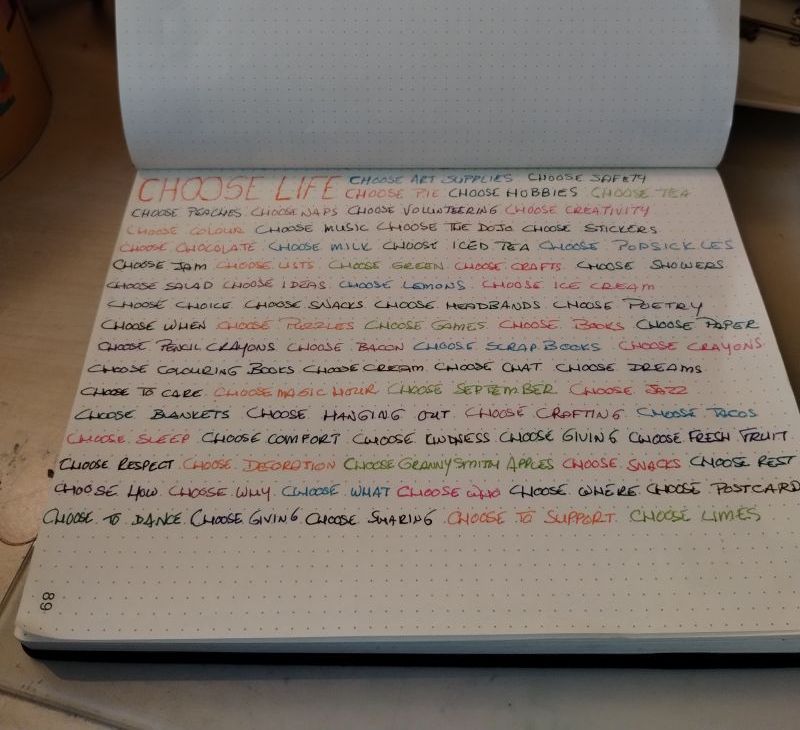 CHOOSE LIFE CHOOSE ART SUPPLIES CHOOSE SAFETY
CHOOSE PIE CHOOSE HOBBIES CHOOSE TEA
CHOOSE PEACHES CHOOSE NAPS CHOOSE VOLUNTEERING CHOOSE CREATIVITY
CHOOSE COLOUR CHOOSE MUSIC CHOOSE THE DOJO CHOOSE STICKERS
CHOOSE CHOCOLATE CHOOSE MILK CHOOSE ICED TEA CHOOSE POPSICKLES
CHOOSE JAM CHOOSE LISTS CHOOSE GREEN CHOOSE CRAFTS CHOOSE SHOWERS
CHOOSE SALAD CHOOSE IDEAS CHOOSE LEMONS CHOOSE ICE CREAM
CHOOSE CHOICE CHOOSE SNACKS CHOOSE HEADBANDS CHOOSE POETRY
CHOOSE WHEN CHOOSE PUZZLES CHOOSE GAMES CHOOSE BOOKS CHOOSE PAPER
CHOOSE PENCIL CRAYONS CHOOSE BACON CHOOSE SCRAP BOOKS CHOOSE CRAYONS
CHOOSE COLOURING BOOKS CHOOSE CREAM CHOOSE CHAT CHOOSE DREAMS
CHOOSE TO CARE CHOOSE MAGIC HOUR CHOOSE SEPTEMBER CHOOSE JAZZ
CHOOSE BLANKETS CHOOSE HANGING OUT CHOOSE CRAFTING CHOOSE TACOS
CHOOSE SLEEP CHOOSE COMFORT CHOOSE KINDNESS CHOOSE GIVING CHOOSE FRESH FRUIT
CHOOSE RESPECT CHOOSE DECORATION CHOOSE GRANNY SMITH APPLES CHOOSE SNACKS CHOOSE REST
CHOOSE HOW CHOOSE WHY CHOOSE WHAT CHOOSE WHO CHOOSE WHERE CHOOSE POSTCARD
CHOOSE TO DANCE CHOOSE GIVING CHOOSE SHARING CHOOSE TO SUPPORT CHOOSE LIMES
89